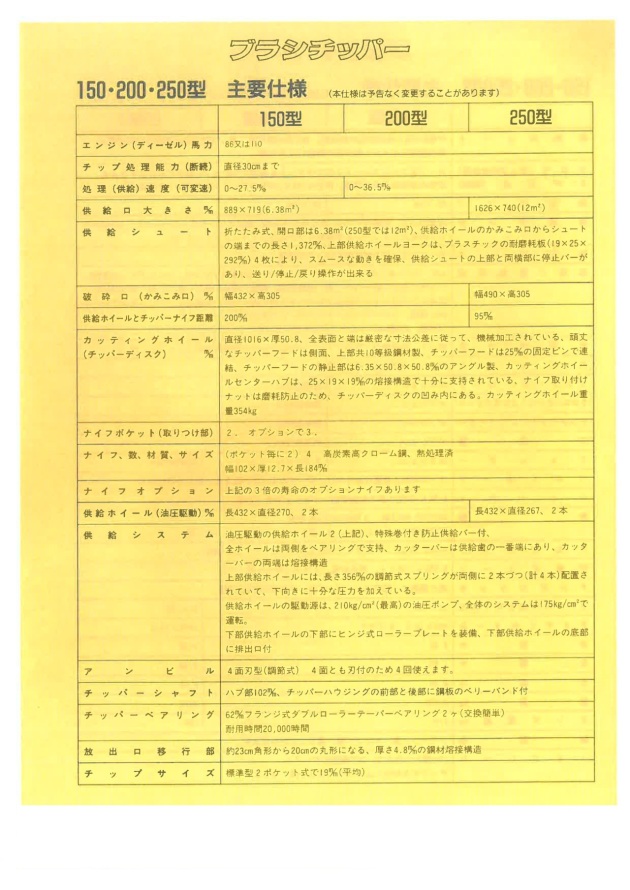 ブラシチッパー
150・200・250型 主要仕様 (本仕様は予告なく変更することがあります)
150型 200型 250型
エンジン(ディーゼル)馬力 86又は110
チップ処理能力(断続) 直径30cmまで
処理(供給)速度(可変速) 0〜27.5% 0〜36.5%
供給口大きさ㎜ 889×719(6.38m²) 1626×740(12m²)
供給シュート 折たたみ式、開口部は6.38m²(250型では12m²)、供給ホイールのかみこみ口からシュート
の端までの長さ1,372㎜、上部供給ホイールヨークは、プラスチックの耐磨耗板(19×25×
292㎜)4枚により、スムースな動きを確保、供給シュートの上部と両横部に停止バーが
あり、送り/停止/戻り操作が出来る
破砕口(かみこみ口)㎜ 幅432×高305 幅490×高305
供給ホイールとチッパーナイフ距離 200㎜ 95㎜
カッティングホイール 直径1016×厚50.8、全表面と端は厳密な寸法公差に従って、機械加工されている、頑丈
(チッパーディスク) ㎜ なチッパーフードは側面、上部共10等級鋼材製、チッパーフードは25㎜の固定ピンで連
結、チッパーフードの静止部は6.35×50.8×50.8㎜のアングル製、カッティングホイ
ールセンターハブは、25×19×19㎜の熔接構造で十分に支持されている、ナイフ取り付け
ナットは磨耗防止のため、チッパーディスクの凹み内にある。カッティングホイール重
量354kg
ナイフポケット(取りつけ部) 2、 オプションで3、
ナイフ、数、材質、サイズ (ポケット毎に2) 4 高炭素高クローム鋼、熱処理済
幅102×厚12.7×長184㎜
ナイフオプション 上記の3倍の寿命のオプションナイフあります
供給ホイール(油圧駆動)㎜ 長432×直径270、2本 長432×直径267、2本
供給システム 油圧駆動の供給ホイール2(上記)、特殊巻付き防止供給バー付、
全ホイールは両側をベアリングで支持、カッターバーは供給歯の一番端にあり、カッタ
ーバーの両端は熔接構造
上部供給ホイールには、長さ356㎜の調節式スプリングが両側に2本づつ(計4本)配置さ
れていて、下向きに十分な圧力を加えている。
供給ホイールの駆動源は、210kg/cm²(最高)の油圧ポンプ、全体のシステムは175kg/cm²で
運転。
下部供給ホイールの下部にヒンジ式ローラープレートを装備、下部供給ホイールの底部
に排出口付
アンビル 4面刃型(調節式) 4面とも刃付のため4回使えます。
チッパーシャフト ハブ部102㎜、チッパーハウジングの前部と後部に鋼板のベリーバンド付
チッパーベアリング 62㎜フランジ式ダブルローラーテーパーベアリング2ヶ(交換簡単)
耐用時間20,000時間
放出口移行部 約23cm角形から20cmの丸形になる、厚さ4.8㎜の鋼材熔接構造
チップサイズ 標準型2ポケット式で19㎜(平均)